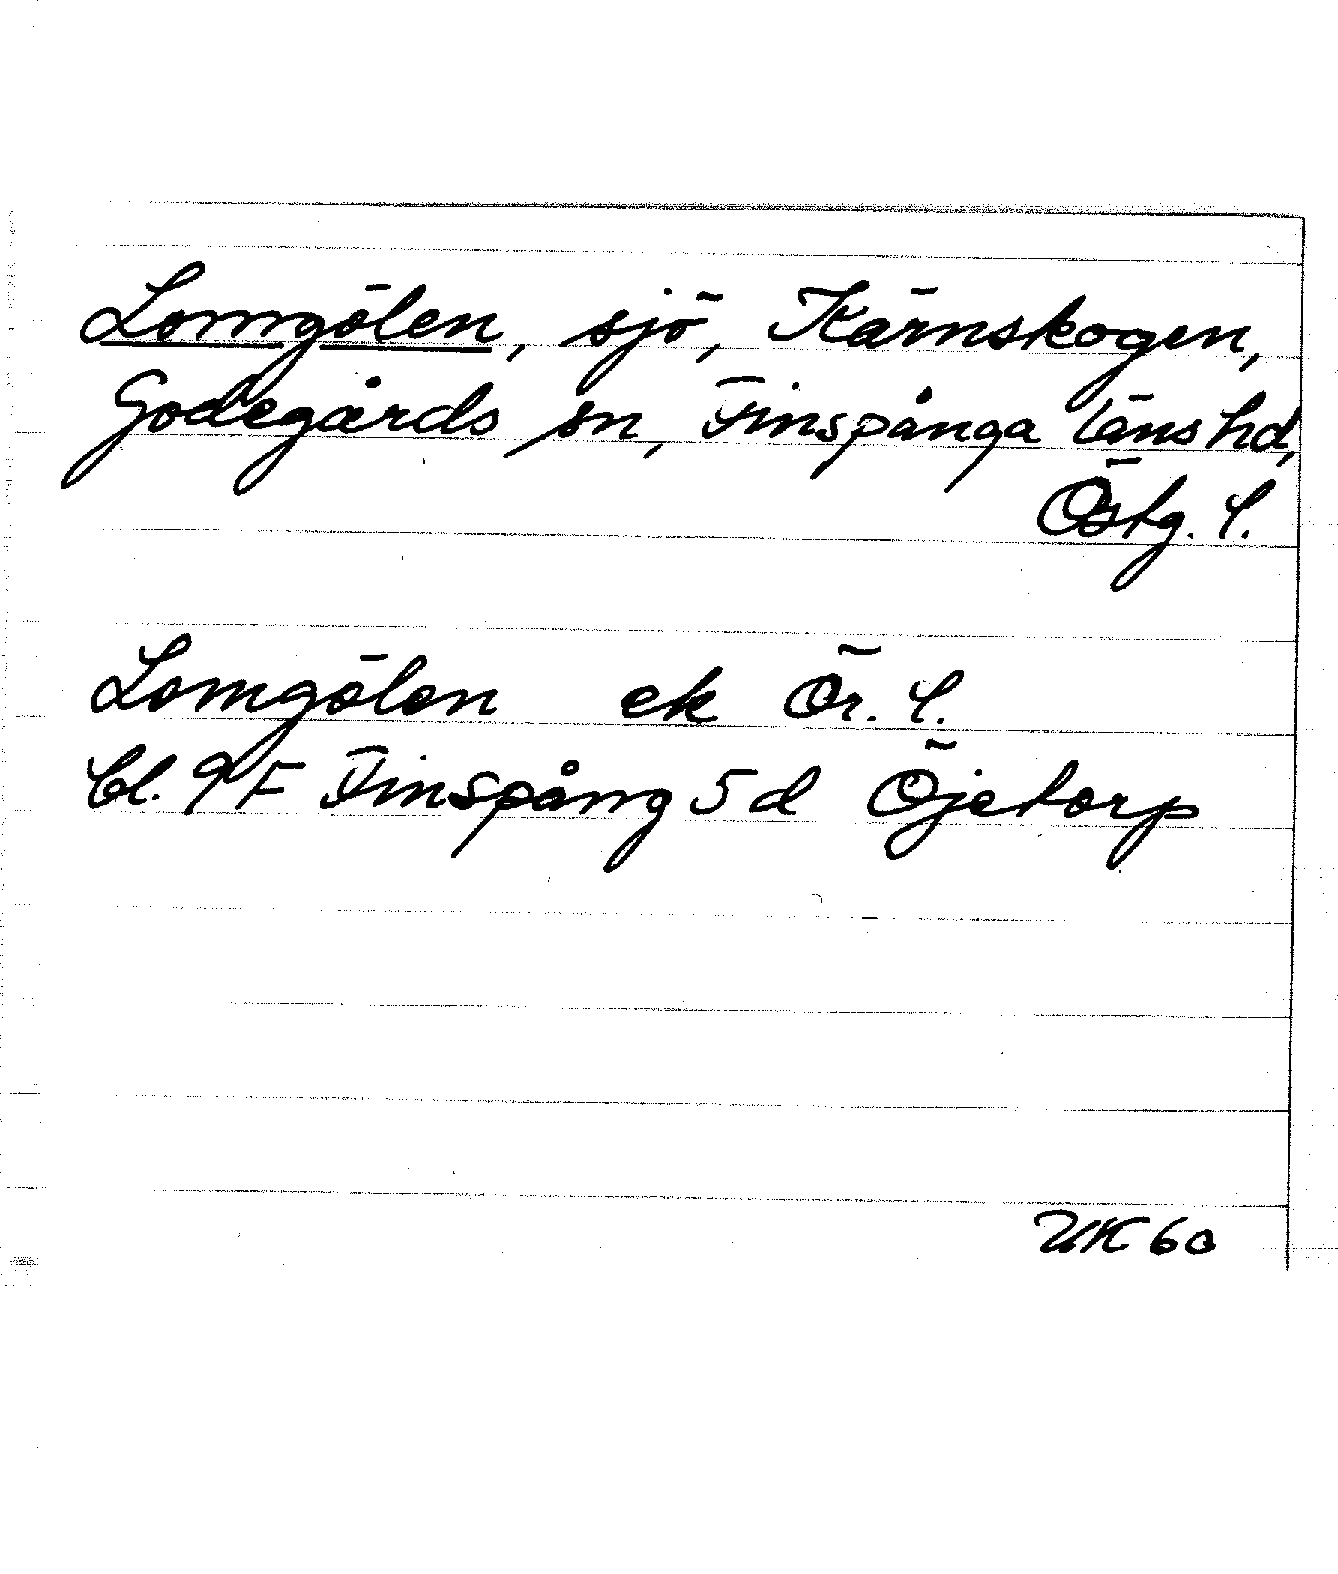 Lomgölen, sjö, Kärnskogen,
Godegårds sn, Finspånga läns hd,
Östg. l.
Lomgölen ek Ör. l.
bl. 9 F Finspång 5 d Öjetorp
UK 60